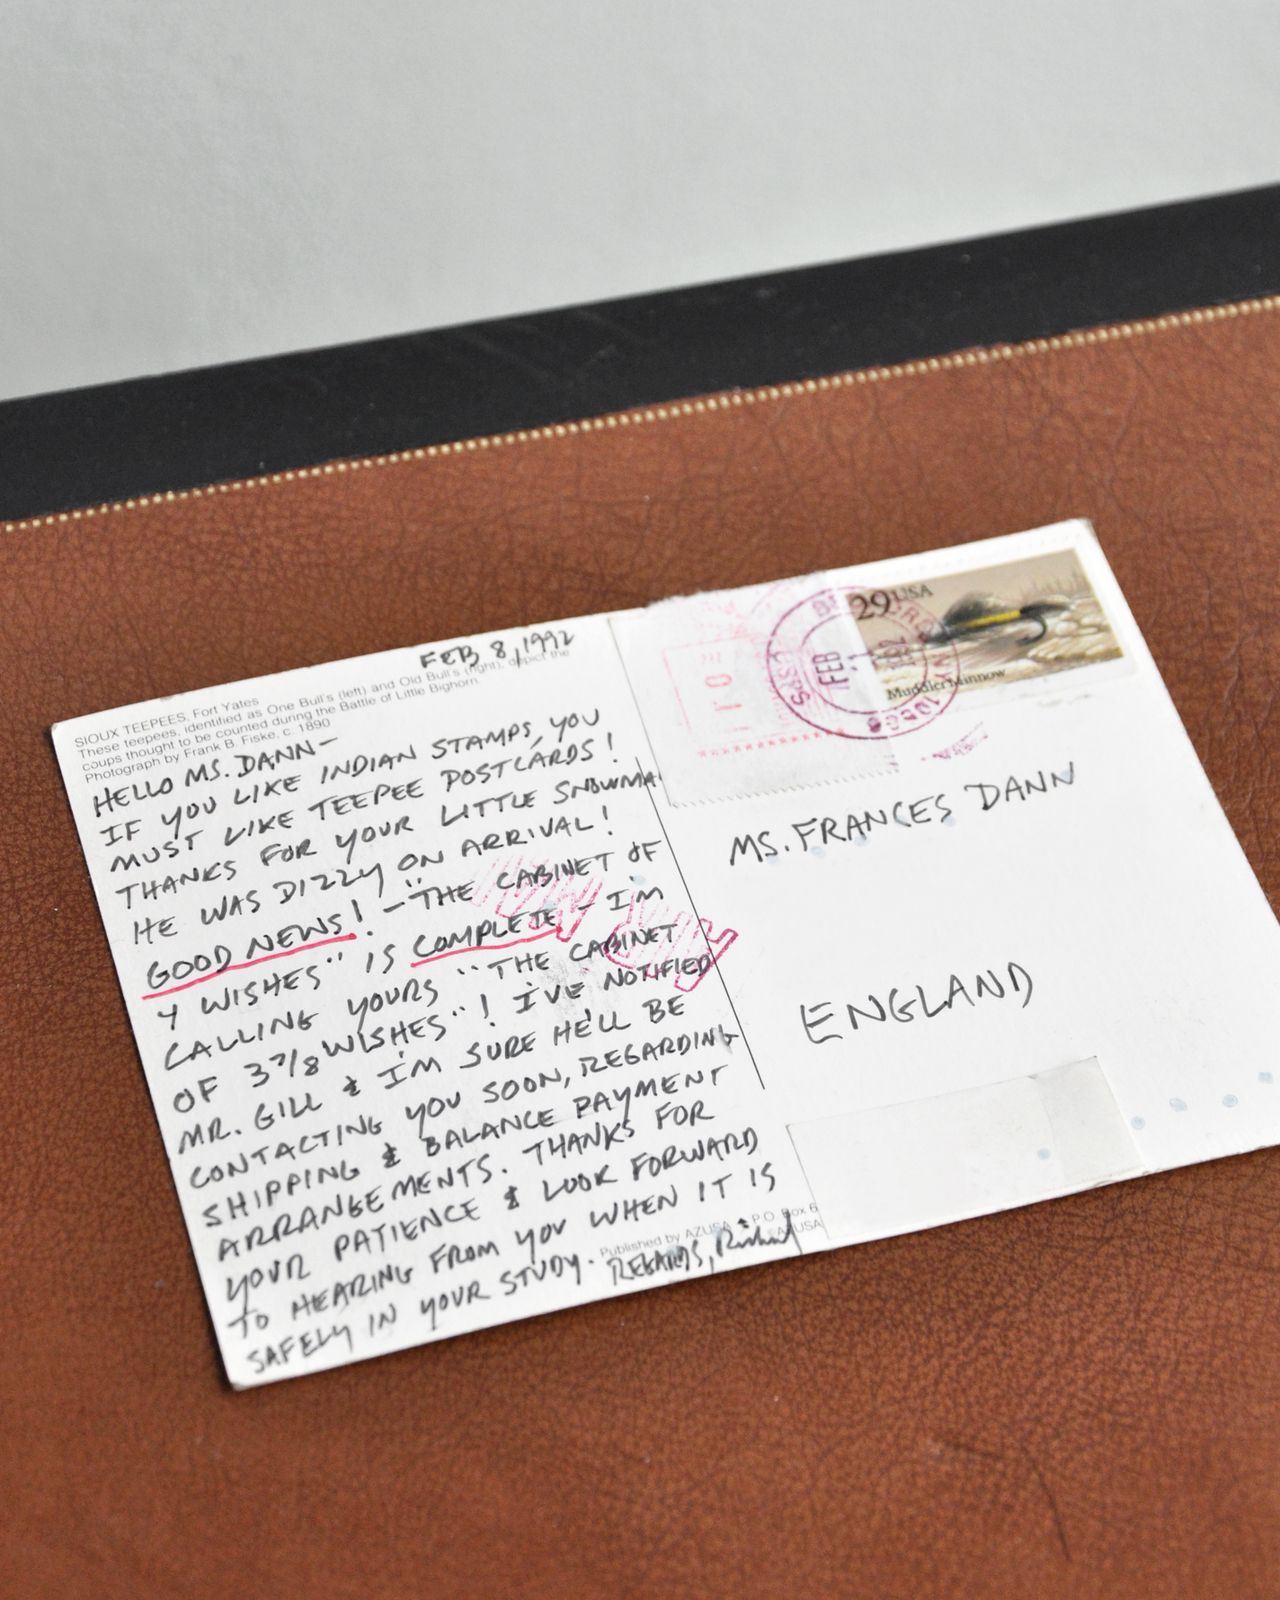 FEB 8, 1992
SIOUX TEEPEES, Fort Yates
These teepees, identified as One Bull's (left) and Old Bull's (right), depict the
coups thought to be counted during the Battle of Little Bighorn.
Photograph by Frank B. Fiske, c. 1890
HELLO MS. DANN-
IF YOU LIKE INDIAN STAMPS, YOU
MUST LIKE TEEPEE POSTCARDS!
THANKS FOR YOUR LITTLE SNOWMA
HE WAS DIZZY ON ARRIVAL!
GOOD NEWS! - "THE CABINET OF
4 WISHES" IS COMPLETE - I'M
CALLING YOURS "THE CABINET
OF 3 7/8 WISHES"! I'VE NOTIFIED
MR. GILL & I'M SURE HE'LL BE
CONTACTING YOU SOON, REGARDING
SHIPPING & BALANCE PAYMENT
ARRANGEMENTS. THANKS FOR
YOUR PATIENCE & LOOK FORWARD
TO HEARING FROM YOU WHEN IT IS
SAFELY IN YOUR STUDY. REGARDS, Richard
Published by AZUSA P.O. Box 6
USA
29 USA
Muddler Minnow
USPS
FEB
1992
MS. FRANCES DANN
ENGLAND